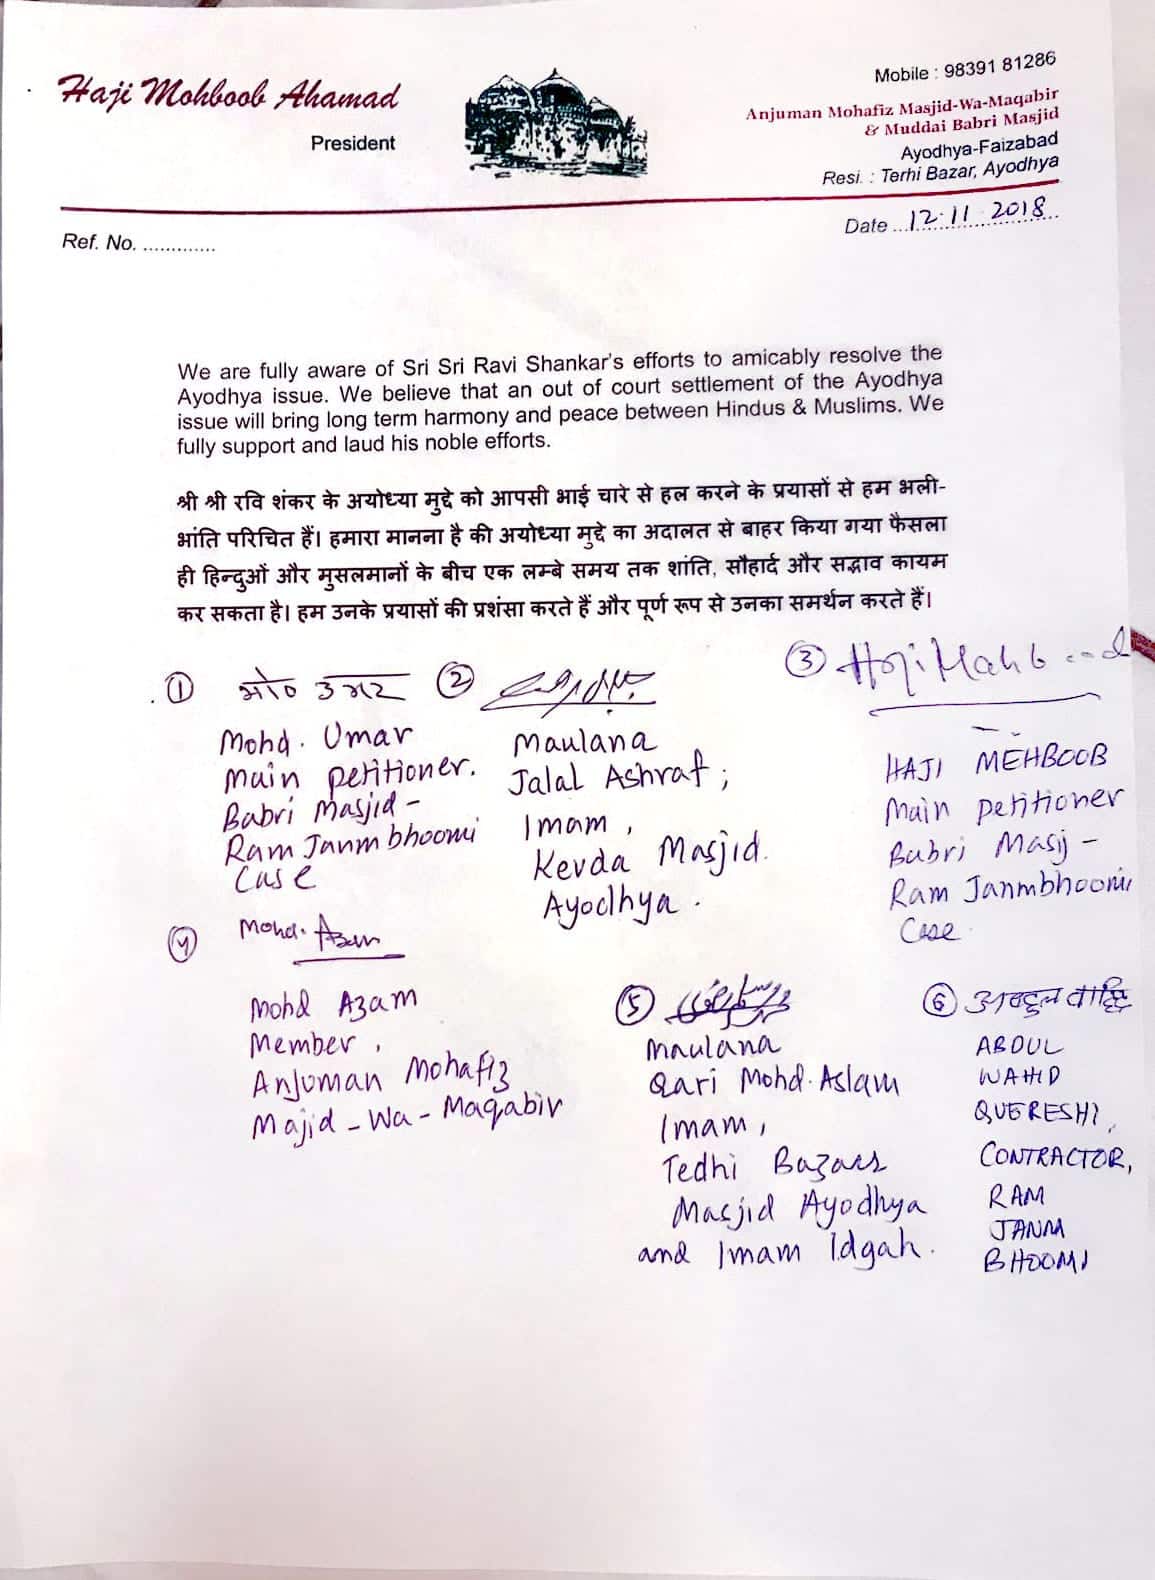 Haji Mohboob Ahamad
President
Mobile : 98391 81286
Anjuman Mohafiz Masjid-Wa-Maqabir
& Muddai Babri Masjid
Ayodhya-Faizabad
Resi. : Terhi Bazar, Ayodhya
Ref. No. .............
Date ...12.11.2018...
We are fully aware of Sri Sri Ravi Shankar's efforts to amicably resolve the
Ayodhya issue. We believe that an out of court settlement of the Ayodhya
issue will bring long term harmony and peace between Hindus & Muslims. We
fully support and laud his noble efforts.
श्री श्री रवि शंकर के अयोध्या मुद्दे को आपसी भाई चारे से हल करने के प्रयासों से हम भली-
भांति परिचित हैं। हमारा मानना है की अयोध्या मुद्दे का अदालत से बाहर किया गया फैसला
ही हिन्दुओं और मुसलमानों के बीच एक लम्बे समय तक शांति, सौहार्द और सद्भाव कायम
कर सकता है। हम उनके प्रयासों की प्रशंसा करते हैं और पूर्ण रूप से उनका समर्थन करते हैं।
1 मो० उमर
Mohd. Umar
Main petitioner.
Babri Masjid -
Ram Janmbhoomi
Case
2
Maulana
Jalal Ashraf;
Imam,
Kevda Masjid.
Ayodhya.
3 Haji Mahbood
HAJI MEHBOOB
Main Petitioner
Babri Masij -
Ram Janmbhoomi
Case.
4 Mohd. Azam
Mohd Azam
Member,
Anjuman Mohafiz
Majid-Wa-Maqabir
5
Maulana
Qari Mohd. Aslam
Imam,
Tedhi Bazaar
Masjid Ayodhya
and Imam Idgah.
6 अब्दुल वाहिद
ABDUL
WAHID
QUERESHI,
CONTRACTOR,
RAM
JANM
BHOOMI